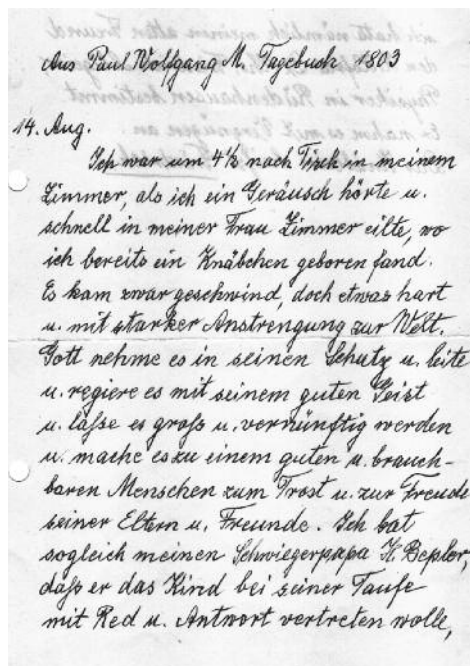 Aus Paul Wolfgang M. Tagebuch 1803
14. Aug.
Ich war um 4½ nach Tisch in meinem
Zimmer, als ich ein Geräusch hörte u.
schnell in meiner Frau Zimmer eilte, wo
ich bereits ein Knäbchen geboren fand.
Es kam zwar geschwind, doch etwas hart
u. mit starker Anstrengung zur Welt.
Gott nehme es in seinen Schutz u. leite
u. regiere es mit seinem guten Geist
u. lasse es groß u. vernünftig werden
u. mache es zu einem guten u. brauch-
baren Menschen zum Trost u. zur Freude
seiner Eltern u. Freunde. Ich bat
sogleich meinen Schwiegerpapa H. Bepler,
daß er das Kind bei seiner Taufe
mit Red u. Antwort vertreten wolle,